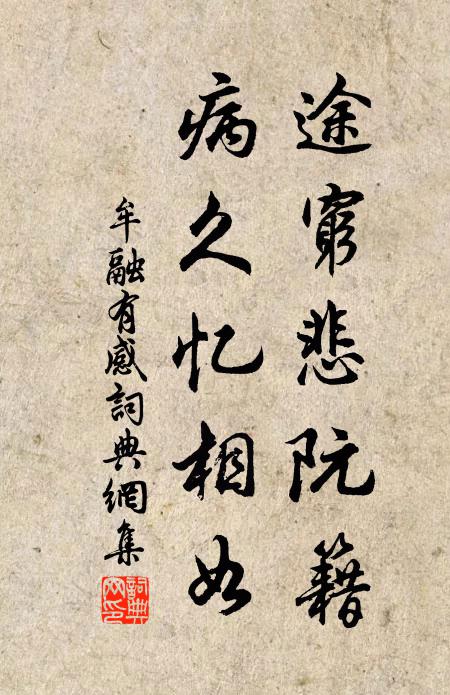 途穷悲阮籍
病久忆相如
牟融有感詞典網集
詞典
网印